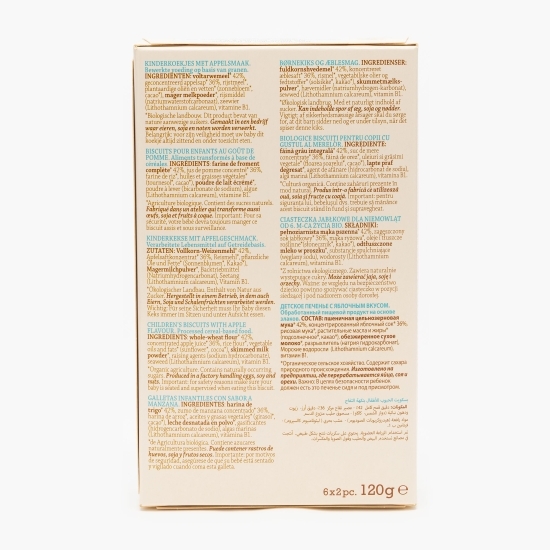 KINDERKOEKJES MET APPELSMAAK.
Bewerkte voeding op basis van granen.
INGREDIËNTEN: voltarwemeel* 42%,
geconcentreerd appelsap* 36%, rijstmeel*,
plantaardige oliën en vetten* (zonnebloem*,
cacao*), mager melkpoeder*, rijsmiddel
(natriumwaterstofcarbonaat), zeewier
(Lithothamnium calcareum), vitamine B1.
*Biologische landbouw. Dit product bevat van
nature aanwezige suikers. Gemaakt in een bedrijf
waar eieren, soja en noten worden verwerkt.
Belangrijk: voor zijn veiligheid moet uw baby dit
koekje altijd zittend en onder toezicht eten.
BISCUITS POUR ENFANTS AU GOÛT DE
POMME. Aliments transformés à base de
céréales. INGRÉDIENTS: farine de froment
complète* 42%, jus de pomme concentré* 36%,
farine de riz*, huiles et graisses végétales*
(tournesol*, cacao*), poudre de lait écrémé*,
poudre à lever (bicarbonate de sodium), algue
(Lithothamnium calcareum), vitamine B1.
*Agriculture biologique. Contient des sucres naturels.
Fabriqué dans un atelier qui transforme aussi
œufs, soja et fruits à coque. Important: Pour sa
sécurité, votre bébé devra toujours manger ce
biscuit assis et sous surveillance.
KINDERKEKSE MIT APFELGESCHMACK.
Verarbeitete Lebensmittel auf Getreidebasis.
ZUTATEN: Vollkorn-Weizenmehl* 42%,
Apfelsaftkonzentrat* 36%, Reismehl*, pflanzliche
Öle und Fette* (Sonnenblumen*, Kakao*),
Magermilchpulver*, Backtriebmittel
(Natriumhydrogencarbonat), Seetang
(Lithothamnium calcareum), Vitamin B1.
*Ökologischer Landbau. Enthält von Natur aus
Zucker. Hergestellt in einem Betrieb, in dem auch
Eiern, Soja und Schalenfrüchten verarbeitet werden.
Wichtig: Für seine Sicherheit muss Ihr Baby diesen
Keks immer im Sitzen und unter Aufsicht essen.
CHILDREN'S BISCUITS WITH APPLE
FLAVOUR. Processed cereal-based food.
INGREDIENTS: whole-wheat flour* 42%,
concentrated apple juice* 36%, rice flour*, vegetable
oils and fats* (sunflower*, cocoa*), skimmed milk
powder*, raising agent (sodium hydrocarbonate),
seaweed (Lithothamnium calcareum), vitamin B1.
*Organic agriculture. Contains naturally occurring
sugars. Produced in a factory handling eggs, soy and
nuts. Important: for safety reasons make sure your
baby is seated and supervised when eating this biscuit.
GALLETAS INFANTILES CON SABOR A
MANZANA. INGREDIENTES: harina de
trigo* 42%, zumo de manzana concentrado* 36%,
harina de arroz*, aceites y grasas vegetales* (girasol*,
cacao*), leche desnatada en polvo*, gasificantes
(hidrogenocarbonato de sodio), algas marinas
(Lithothamnium calcareum), vitamina B1.
*Agricultura biológica. Contiene azúcares
naturalmente presentes. Puede contener rastros de
huevos, soja y frutos secos. Importante: por motivos
de seguridad, asegúrese de que su bebé está sentado
y vigilado cuando coma esta galleta.
BØRNEKIKS OG ÆBLESMAG. INGREDIENSER:
fuldkornshvedemel* 42%, koncentreret
æblesaft* 36%, rismel*, vegetabilske olier og
fedtstoffer* (solsikke*, kakao*), skummetmælks-
pulver*, hævemidler (natriumhydrogenkarbonat),
søgræs (Lithothamnium calcareum), vitamin B1.
*Økologisk landbrug. Med et naturligt indhold af
sukker. Kan indeholde spor af æg, soja og nødder.
Vigtigt: af sikkerhedsmæssige årsager skal du sørge
for, at dit barn sidder ned og er under opsyn, når det
spiser denne kiks.
BIOLOGICE BISCUIȚI PENTRU COPII CU
GUSTUL AL MERELOR. INGREDIENTE:
făină grâu integrală* 42%, suc de mere
concentrat* 36%, făină de orez*, uleiuri și grăsimi
vegetale* (floarea soarelui*, cacao*), lapte praf
degresat*, agent de afânare (hidrocarbonat de sodiu),
algă marină (Lithothamnium calcareum), vitamina B1.
*Cultură organică. Conține zaharuri prezente în
mod natural. Produs într-o fabrică ce utilizează
ouă, soia și fructe cu coajă. Important: pentru
siguranța lui, bebelușul dvs. trebuie să mănânce
acest biscuit întotdeauna așezat și supravegheat.
CIASTECZKA JABŁKOWE DLA NIEMOWLĄT
OD 6. M-CA ŻYCIA BIO. SKŁADNIKI:
pełnoziarnista mąka pszenna* 42%, zagęszczony
sok jabłkowy* 36%, mąka ryżowa*, oleje i tłuszcze
roślinne* (słonecznik*, kakao*), odtłuszczone
mleko w proszku*, substancje spulchniające
(węglany sodu), wodorosty (Lithothamnium
calcareum), witamina B1.
*Z rolnictwa ekologicznego. Zawiera naturalnie
występujące cukry. Może zawierać jaja, soję i
orzechy. Ważne: ze względu na bezpieczeństwo
dziecko powinno spożywać ciasteczko w pozycji
siedzącej i pod nadzorem osoby dorosłej.
ДЕТСКОЕ ПЕЧЕНЬЕ С ЯБЛОЧНЫМ ВКУСОМ.
Обработанный пищевой продукт на основе
злаков. СОСТАВ: пшеничная цельнозерновая
мука* 42%, концентрированный яблочный сок* 36%,
рисовая мука*, растительные масла и жиры*
(подсолнечное*, какао*), обезжиренное сухое
молоко*, разрыхлитель (натрия гидрокарбонат),
Морские водоросли (Lithothamnium calcareum),
витамин B1.
*Органическое сельское хозяйство. Содержит сахара
природного происхождения. Изготовлено на
предприятии, где перерабатываются яйца, соя и
орехи. Важно: В целях безопасности ребенок
должен есть это печенье сидя и под присмотром.
6x2pc. 120g e